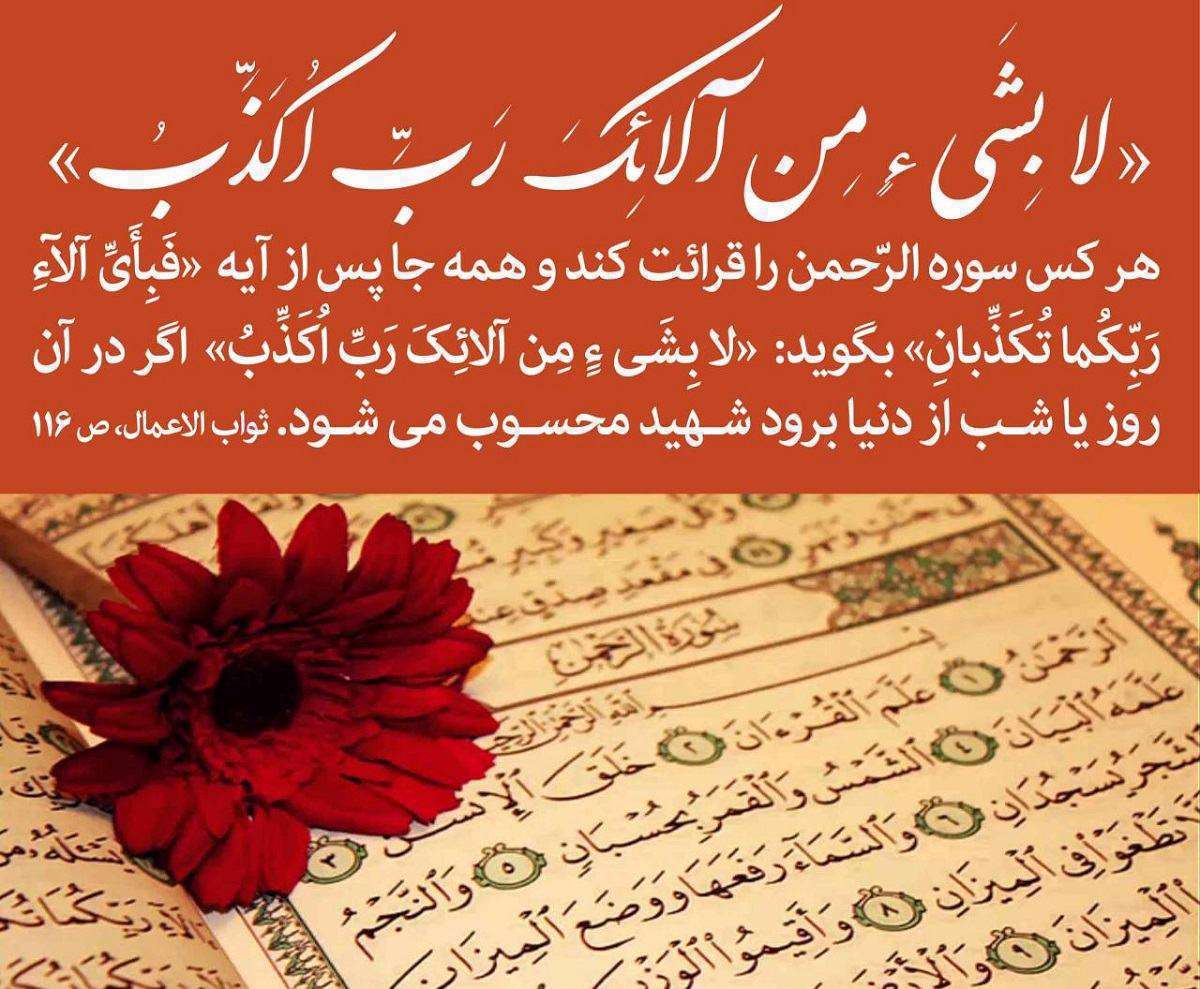 «لا بِشَیءٍ مِن آلائِکَ رَبِّ اُکَذِّبُ»
هر کس سوره الرّحمن را قرائت کند و همه جا پس از آیه «فَبِأَیِّ آلآءِ
رَبِّکُما تُکَذِّبانِ» بگوید: «لا بِشَی ءٍ مِن آلائِکَ رَبِّ اُکَذِّبُ» اگر در آن
روز یا شب از دنیا برود شهید محسوب می شود. ثواب الاعمال، ص ۱۱۶
وَكُلُّ صَغِيرٍ وَكَبِيرٍ
فِي مَقْعَدِ صِدْقٍ عِندَ
سُورَةُ الرَّحْمَٰن
بِسْمِ اللَّهِ الرَّحْمَٰنِ الرَّحِيمِ
الرَّحْمَٰنُ ١ عَلَّمَ الْقُرْءَانَ ٢ خَلَقَ الْإِنسَٰنَ ٣
عَلَّمَهُ الْبَيَانَ ٤ الشَّمْسُ وَالْقَمَرُ بِحُسْبَانٍ ٥ وَالنَّجْمُ
وَالشَّجَرُ يَسْجُدَانِ ٦ وَالسَّمَاءَ رَفَعَهَا وَوَضَعَ الْمِيزَانَ
تَطْغَوْا فِي الْمِيزَانِ ٨ وَأَقِيمُوا الْوَزْنَ
الْمِيزَانَ ٩ وَالْأَرْضَ